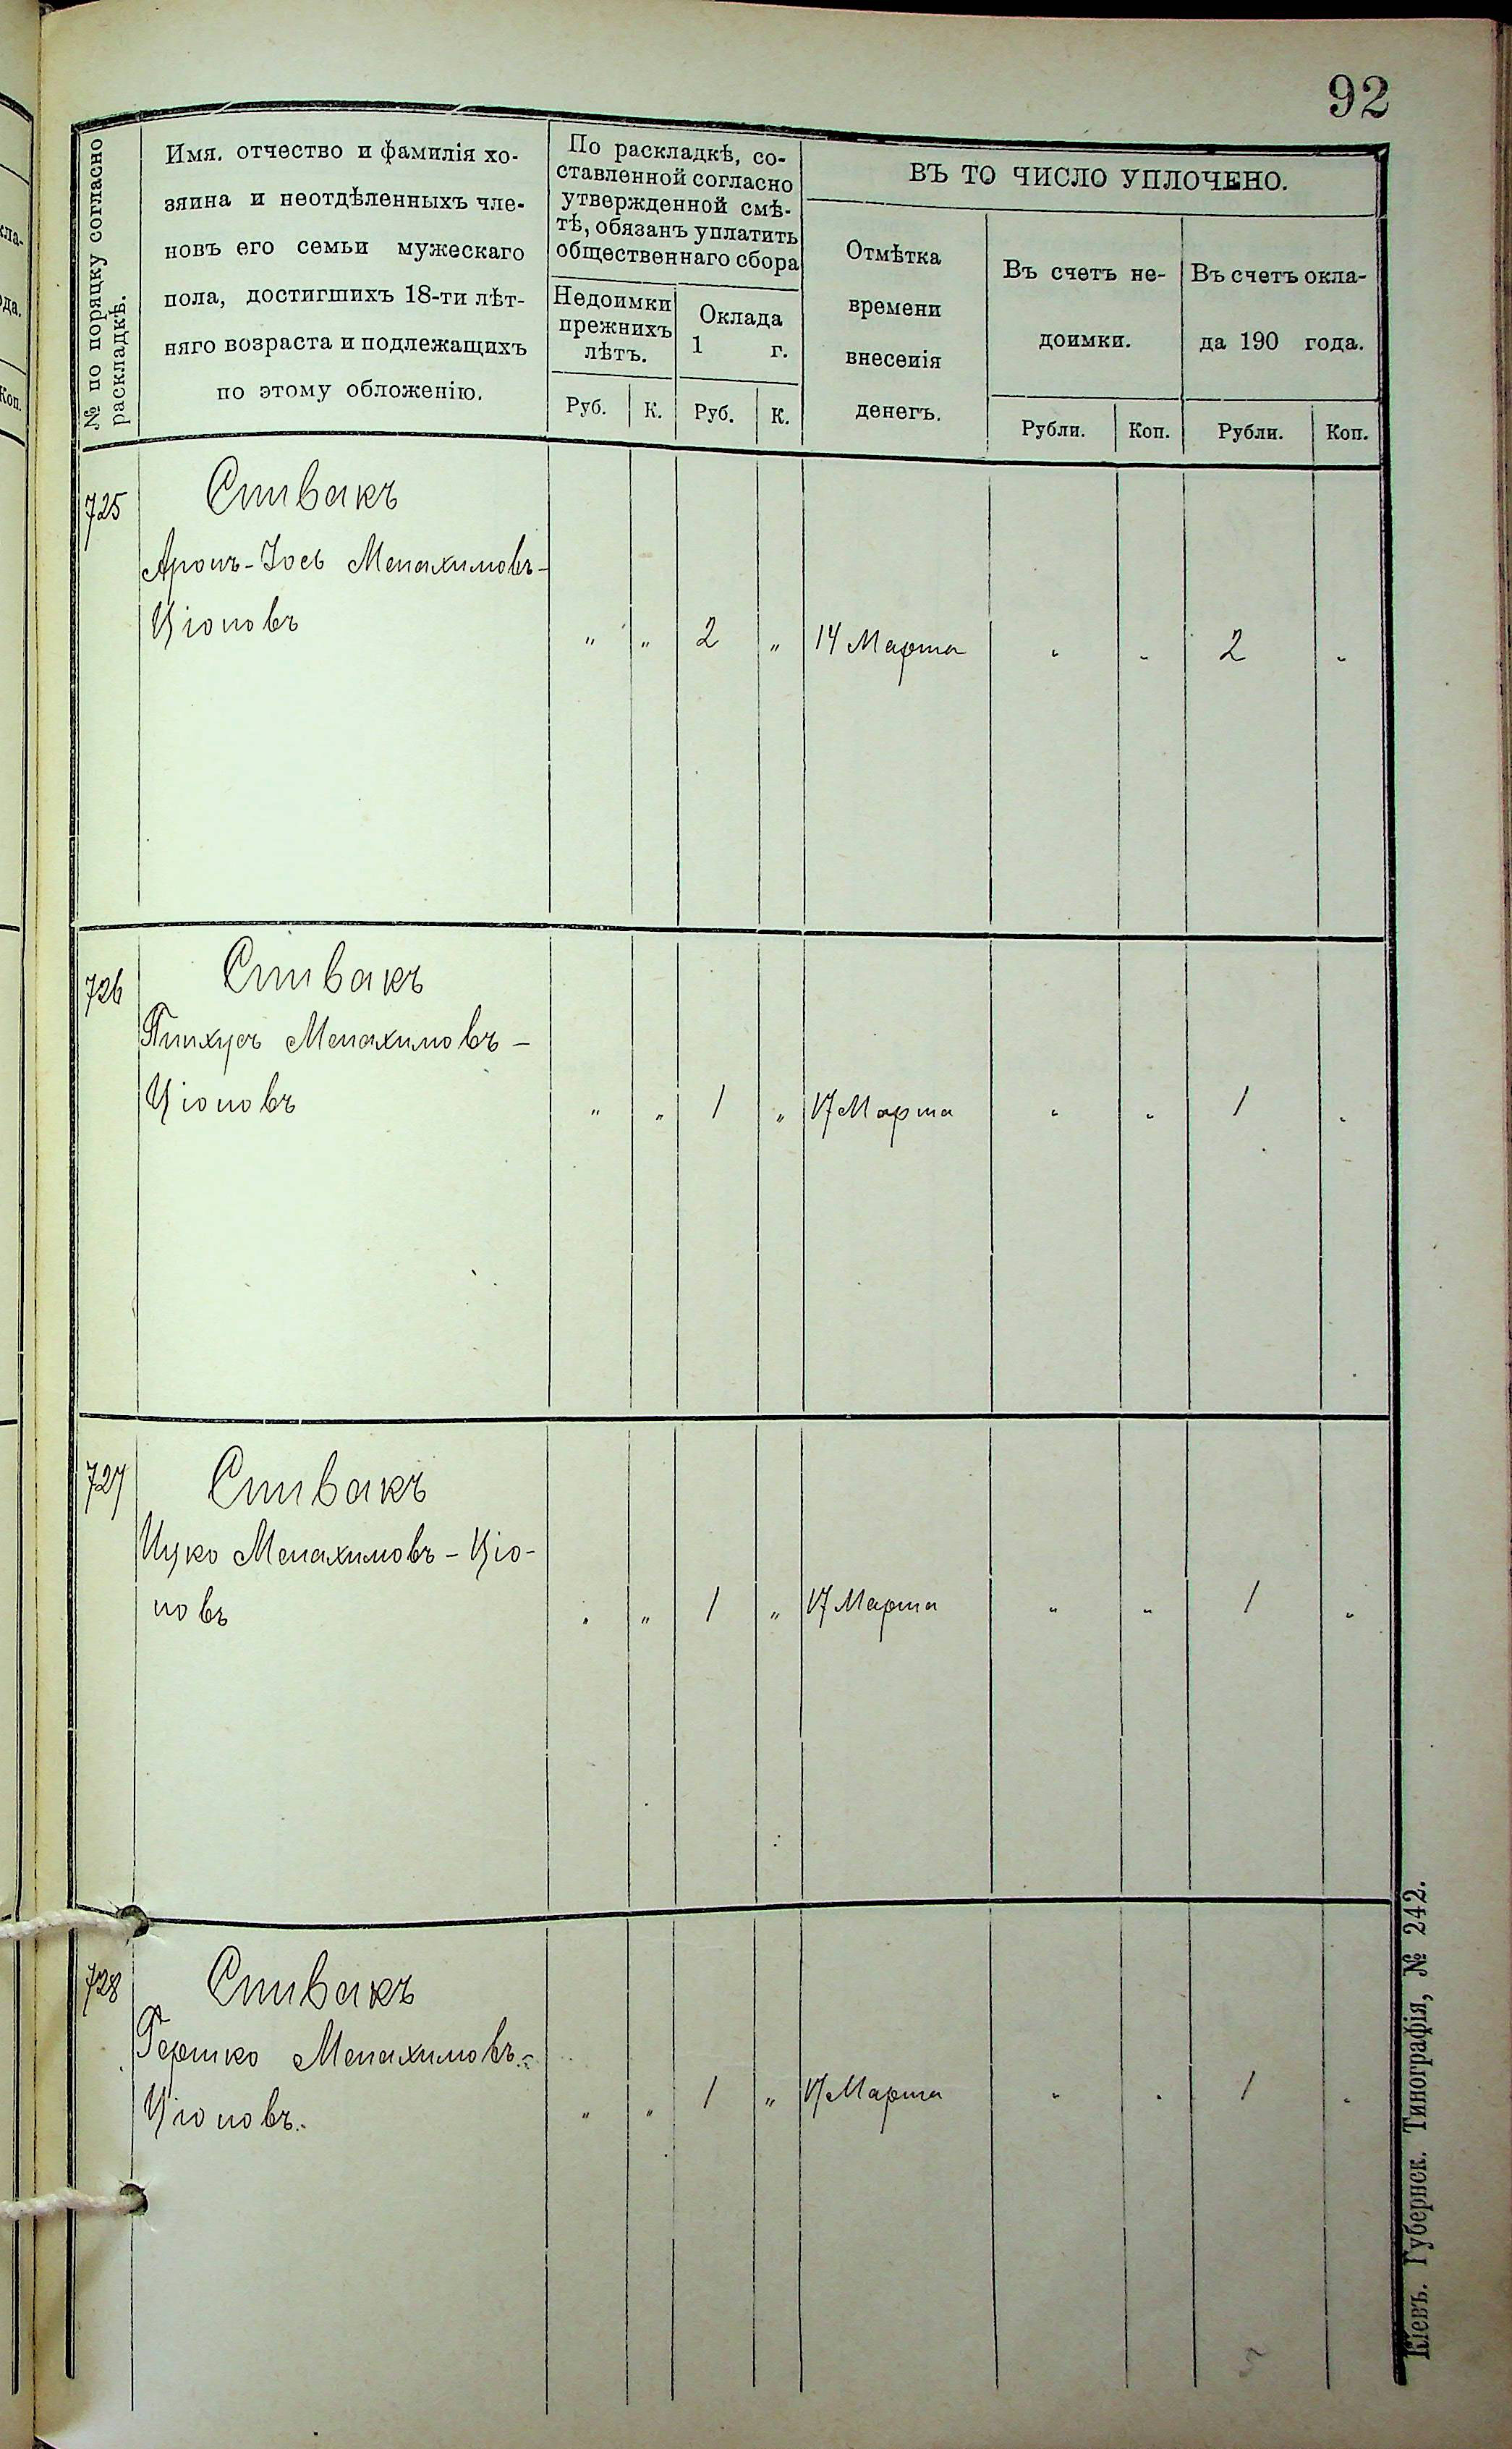 92
№ по поряцку согласно
раскладкѣ.
Имя. отчество и фамилія хо-
зяина и неотдѣленныхъ чле-
новъ его семьи мужескаго
пола, достигшихъ 18-ти лѣт-
няго возраста и подлежащихъ
по этому обложенію.
По раскладкѣ, со-
ставленной согласно
утвержденной смѣ-
тѣ, обязанъ уплатить
общественнаго сбора
Недоимки
прежнихъ
лѣтъ.
Оклада
1 г.
Руб. К. Руб. К.
ВЪ ТО ЧИСЛО УПЛОЧЕНО.
Отмѣтка
времени
внесенія
денегъ.
Въ счетъ не-
доимки.
Въ счетъ окла-
да 190 года.
Рубли. Коп. Рубли. Коп.
725 Спивакъ
Аронъ-Іось Менахимовъ-
Ціоновъ
" " 2 " 14 Марта " " 2 "
726 Спивакъ
Пинхусъ Менахимовъ -
Ціоновъ
" " 1 " 17 Марта " " 1 "
727 Спивакъ
Ицко Менахимовъ - Ціо-
новъ
" " 1 " 17 Марта " " 1 "
728 Спивакъ
Гершко Менахимовъ-
Ціоновъ.
" " 1 " 17 Марта " " 1 "
Кіевъ. Губернск. Типографія, № 242.
кла-
да.
Коп.